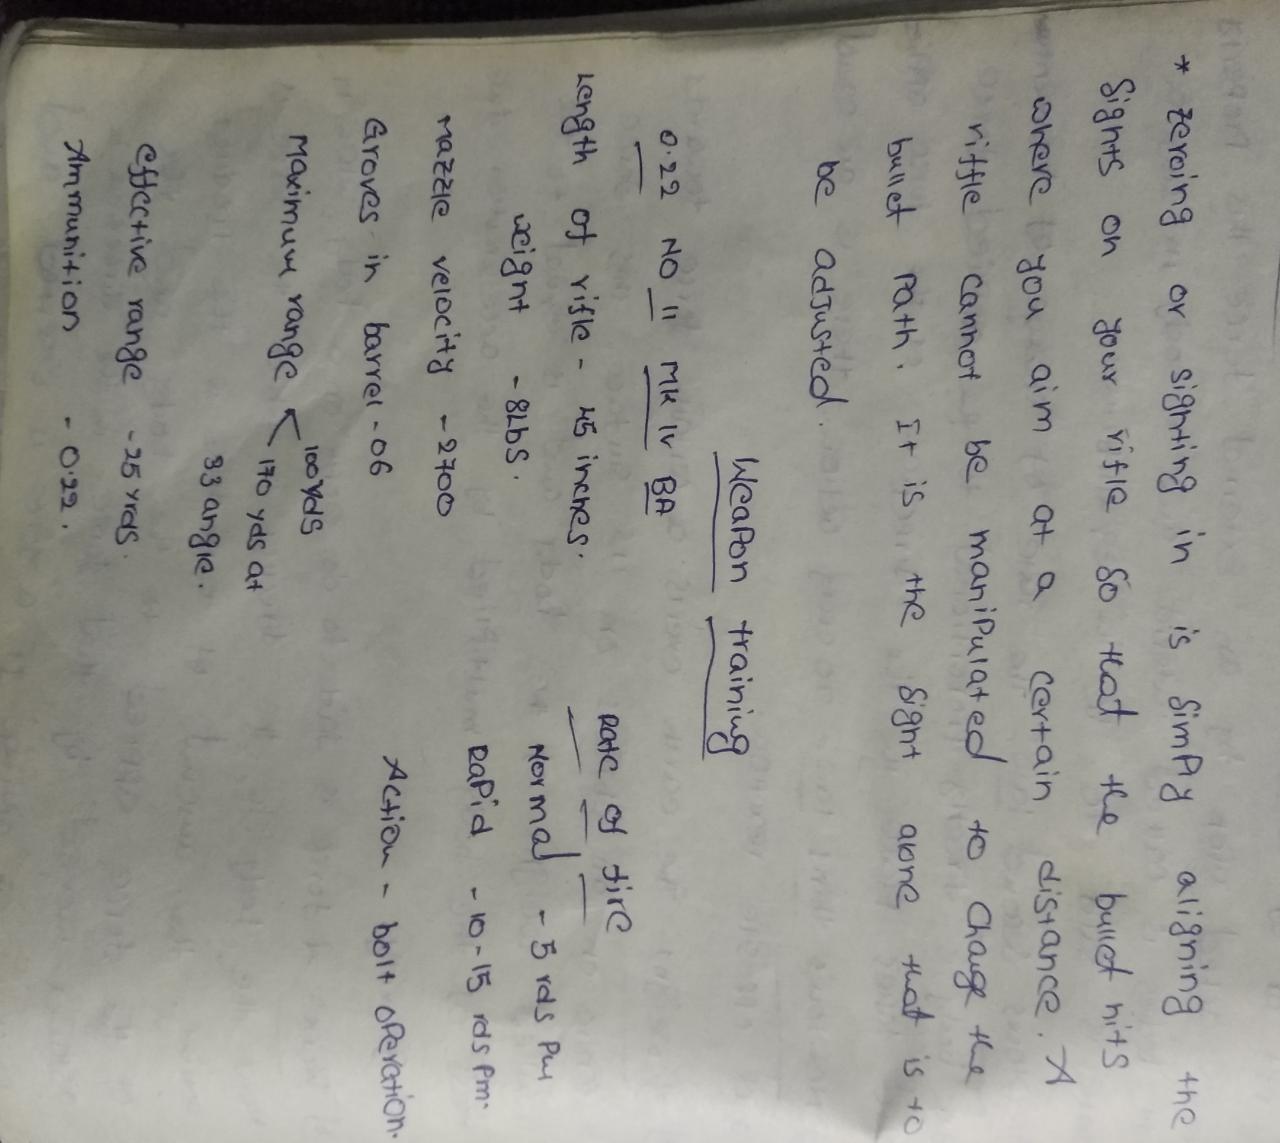 * zeroing or sighting in is simply aligning the
Sights on your rifle so that the bullet hits
where you aim at a certain distance. A
riffle cannot be manipulated to Change the
bullet path. It is the sight alone that is to
be adjusted.
Weapon training
0.22 NO II MK IV BA
Length of rifle - 45 inches.
weight - 8Lbs.
Mazzle velocity - 2700
Groves in barrel - 06
Maximum range < 100 Yds
170 yds at
33 angle.
effective range - 25 yrds.
Ammunition - 0.22.
Rate of fire
Normal - 5 rds Pm
Rapid - 10-15 rds Pm.
Action - bolt operation.